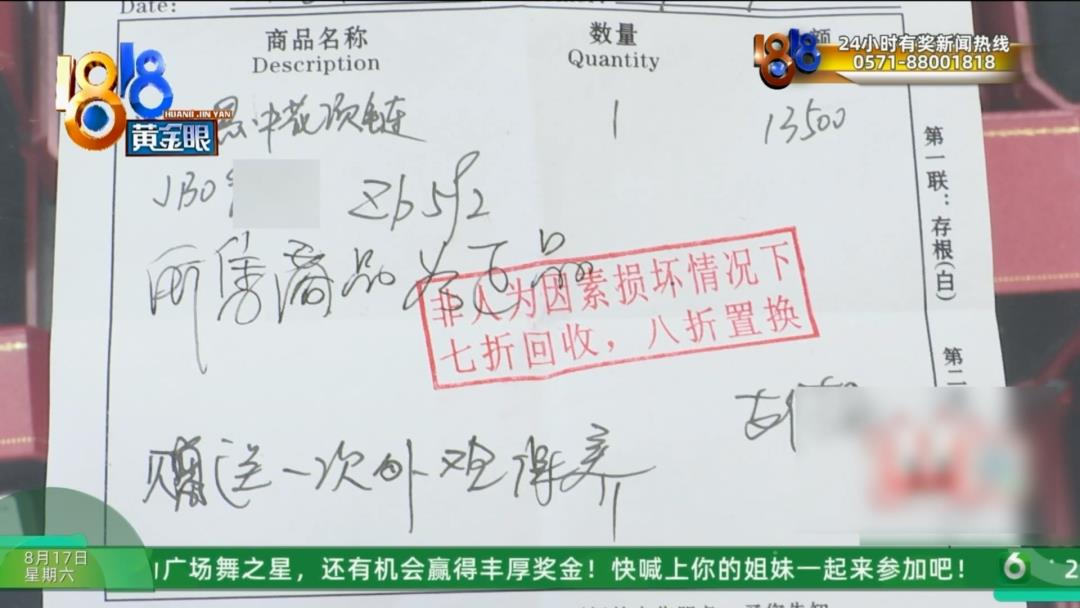 Date:
商品名称
Description
数量
Quantity
额
1818
HUANG JIN YAN
黄金眼
24小时有奖新闻热线
0571-88001818
中花项链 1 13500
JB0
Zb5
所售商品为正品
非人为因素损坏情况下
七折回收，八折置换
赠送一次外观保养
第一联：存根(白)
第二
8月17日
星期六
广场舞之星，还有机会赢得丰厚奖金！快喊上你的姐妹一起来参加吧！
6
2